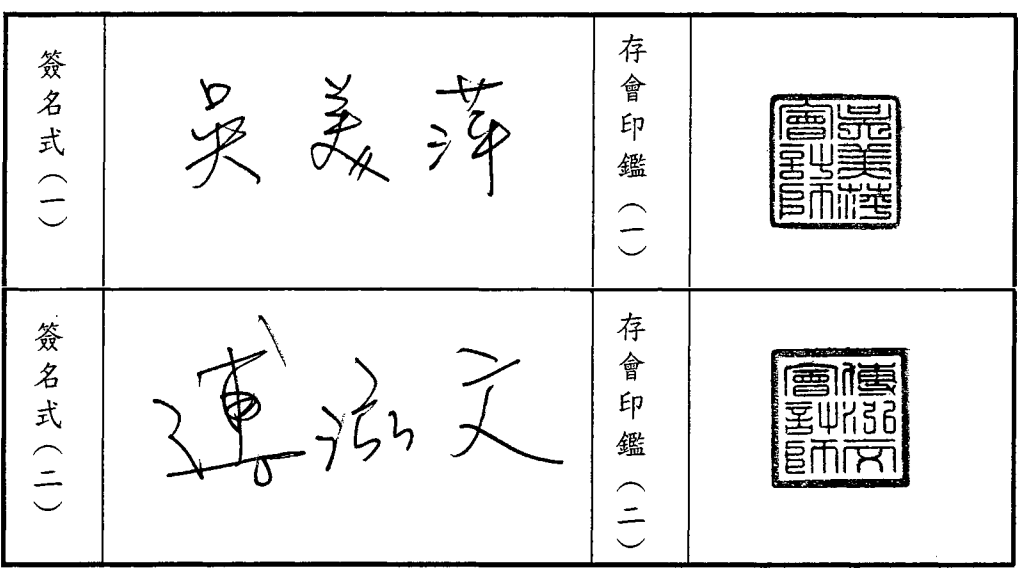 簽名式(一)
吳美萍
存會印鑑(一)
吳美萍
會計師
簽名式(二)
傅泓文
存會印鑑(二)
傅泓文
會計師